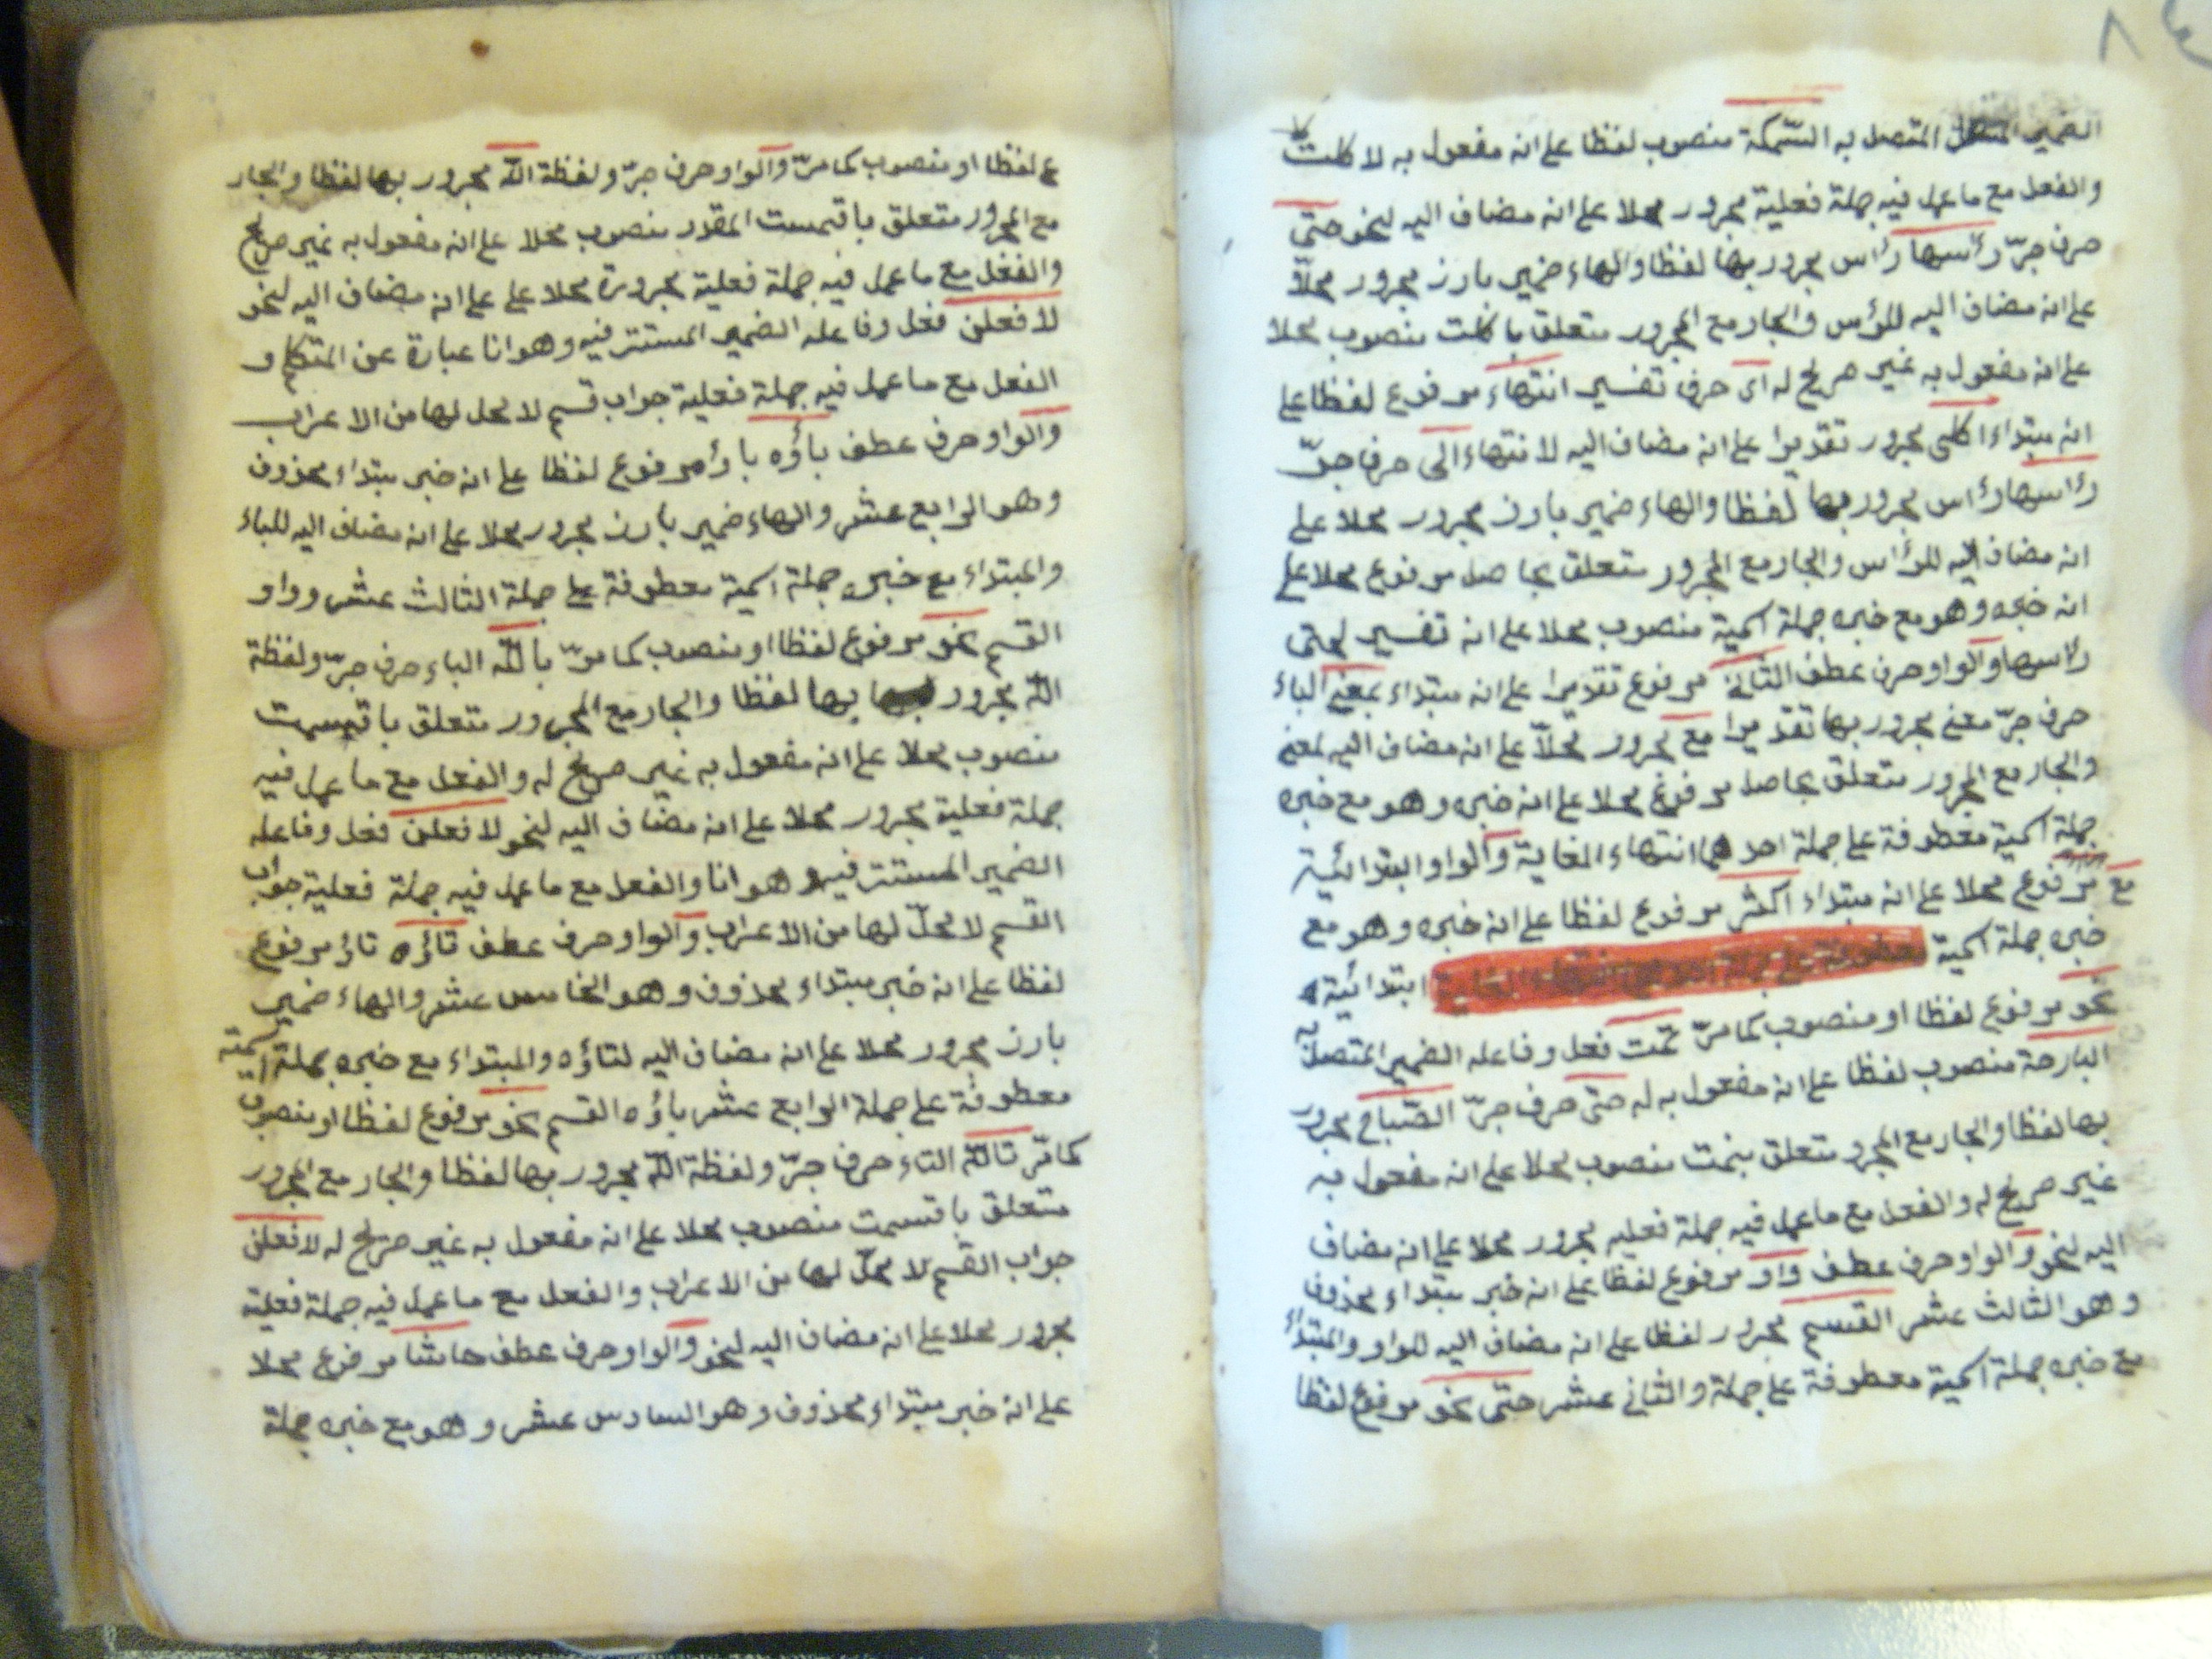 ٨
الضمير المتصل المتصل به السّمكة منصوب لفظا على انه مفعول به لا كلت
والفعل مع ما عمل فيه جملة فعلية مجرور محلا على انه مضاف اليه لنحو حتى
حرف جرّ رأسها رأس مجرور بها لفظا والهاء ضمير بارز مجرور محلّا
على انه مضاف اليه للرؤس والجار مع المجرور متعلق باكلت منصوب محلا
على انه مفعول به غير صريح له اى حرف تفسير انتهاء مرفوع لفظا على
انه مبتداء اكلى مجرور تقديرا على انه مضاف اليه لانتهاء الى حرف جرّ
رأسها رأس مجرور بها لفظا والهاء ضمير بارز مجرور محلا على
انه مضاف اليه للرأس والجار مع المجرور متعلق بحاصل مرفوع محلا على
انه خبره وهو مع خبره جملة اسمية منصوب محلا على انه تفسير لحتى
رأسها والواو حرف عطف الثانى مرفوع تقديرا على انه مبتداء بمعنى الباء
حرف جرّ معنى مجرور بها تقديرا مع مجرور محلّا على انه مضاف اليه لمعنى
والجار مع المجرور متعلق بحاصل مرفوع محلا على انه خبره وهو مع خبره
جملة اسمية معطوفة على جملة احدهما انتهاء الغاية والواو ابتدائية
مع مرفوع محلا على انه مبتداء اكثر مرفوع لفظا على انه خبره وهو مع
خبره جملة اسمية ابتدائية
نحو مرفوع لفظا او منصوب كما مرّ نمت فعل وفاعله الضمير المتصل به
البارحة منصوب لفظا على انه مفعول به له حتى حرف جرّ الصّباح مجرور
بها لفظا والجار مع المجرور متعلق بنمت منصوب محلا على انه مفعول به
غير صريح له والفعل مع ما عمل فيه جملة فعليه مجرور محلا على انه مضاف
اليه لنحو والواو حرف عطف واو مرفوع لفظا على انه خبر مبتداء محذوف
وهو الثالث عشر القسم مجرور لفظا على انه مضاف اليه للواو والمبتداء
مع خبره جملة اسمية معطوفة على جملة والثانى عشر حتى نحو مرفوع لفظا
ع لفظا او منصوب كما مرّ والواو حرف جرّ ولفظة الله مجرور بها لفظا والجار
مع المجرور متعلق باقسمت المقدر منصوب محلا على انه مفعول به غير صريح
والفعل مع ما عمل فيه جملة فعلية مجرورة محلا على على انه مضاف اليه لنحو
لافعلن فعل وفاعله الضمير المستتر فيه وهو انا عبارة عن المتكلم و
الفعل مع ما عمل فيه جملة فعلية جواب قسم لا محل لها من الاعراب
والواو حرف عطف باؤه باؤ مرفوع لفظا على انه خبر مبتداء محذوف
وهو الرابع عشر والهاء ضمير بارز مجرور محلا على انه مضاف اليه للباء
والمبتداء مع خبره جملة اسمية معطوفة على جملة الثالث عشر وواو
القسم نحو مرفوع لفظا او منصوب كما مرّ بالله الباء حرف جرّ ولفظة
الله مجرور بها لفظا والجار مع المجرور متعلق باقسمت
منصوب محلا على انه مفعول به غير صريح له والفعل مع ما عمل فيه
جملة فعلية مجرور محلا على انه مضاف اليه لنحو لافعلن فعل وفاعله
الضمير المستتر فيه وهو انا والفعل مع ما عمل فيه جملة فعلية جواب
القسم لا محلّ لها من الاعراب والواو حرف عطف تاؤه تاؤ مرفوع
لفظا على انه خبر مبتداء محذوف وهو الخامس عشر والهاء ضمير
بارز مجرور محلا على انه مضاف اليه لتاؤه والمبتداء مع خبره جملة اسمية
معطوفة على جملة الرابع عشر باؤه القسم نحو مرفوع لفظا او منصوب
كما مّر تالله التاء حرف جرّ ولفظة الله مجرور بها لفظا والجار مع المجرور
متعلق باقسمت منصوب محلا على انه مفعول به غير صريح له لافعلن
جواب القسم لا محلّ لها من الاعراب والفعل مع ما عمل فيه جملة فعلية
مجرور محلا على انه مضاف اليه لنحو والواو حرف عطف حاشا مرفوع محلا
على انه خبر مبتداء محذوف وهو السادس عشر وهو مع خبره جملة